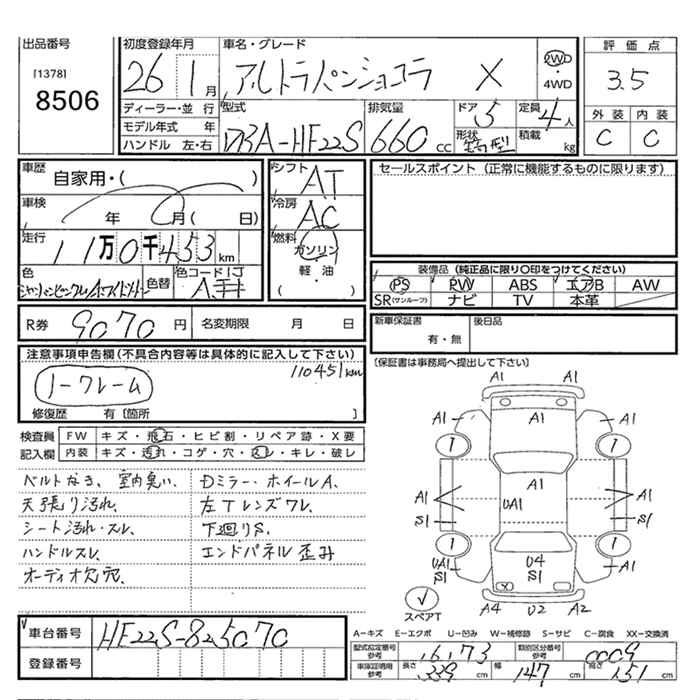 出品番号 [1378] 8506
初度登録年月 26 1月
車名・グレード アルトラパンショコラ X
2WD・4WD
評価点 3.5
外装 C 内装 C
ディーラー・並行
モデル年式 年
ハンドル 左・右
型式 DBA-HE22S
排気量 660 cc
ドア 5
形状 箱型
定員 4人
積載 kg
車歴 自家用・( )
車検 年 月 (日)
走行 11万0千453 km
色
色替
色コード
シフト AT
冷房 AC
燃料 ガソリン
軽・油
( )
セールスポイント (正常に機能するものに限ります)
装備品 (純正品に限り○印をつけてください)
PS PW ABS エアB AW
SR(サンルーフ) ナビ TV 本革
R券 9070 円 名変期限 月 日
新車保証書 有・無 後日品
(保証書は事務局へ提出して下さい)
注意事項申告欄(不具合内容等は具体的に記入して下さい)
110451km
ノークレーム
修復歴 有 [箇所 ]
検査員 FW キズ・飛石・ヒビ割・リペア跡・X要
記入欄 内装 キズ・汚れ・コゲ・穴・スレ・キレ・破レ
ベルトなき、室内臭い、 Dミラー・ホイールA.
天張り汚れ、 左Tレンズワレ、
シート汚れ・スレ、 下廻りS.
ハンドルスレ、 エンドパネル歪み
オーディオ欠、穴、
A1
A1 A1 A1
A1
A1 UA1 A1
S1 S1
UA1 U4 A1
S1 S1 S1
スペアT
A4 U2 A2
車台番号 HE22S-825070
登録番号
A-キズ E-エクボ U-凹み W-補修跡 S-サビ C-腐食 XX-交換済
型式指定番号参考 16173 類別区分番号参考 0009
車庫証明用参考 長さ 339 cm 幅 147 cm 高さ 151 cm